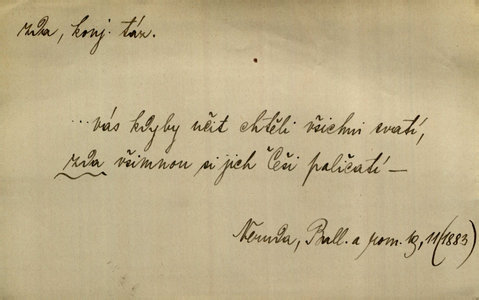 zda, konj. táz.
...vás kdyby učit chtěli všichni svatí,
zda všimnou si jich Češi paličatí —
Neruda, Ball. a rom. 11 (1883)